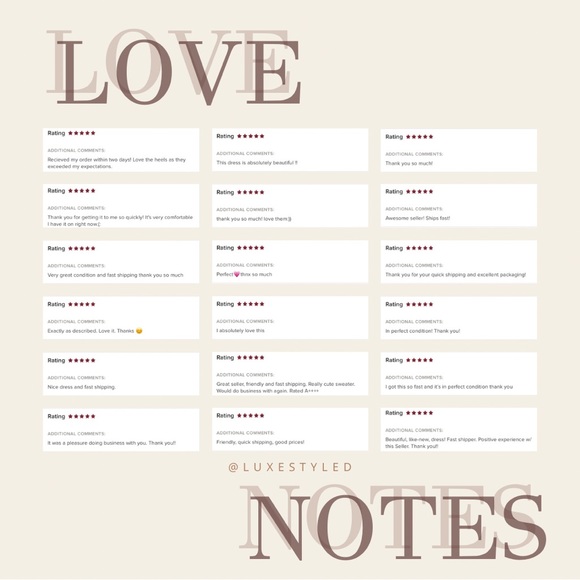 LOVE
Rating ★★★★★
ADDITIONAL COMMENTS:
Recieved my order within two days! Love the heels as they
exceeded my expectations.
Rating ★★★★★
ADDITIONAL COMMENTS:
This dress is absolutely beautiful !!
Rating ★★★★★
ADDITIONAL COMMENTS:
Thank you so much!
Rating ★★★★★
ADDITIONAL COMMENTS:
Thank you for getting it to me so quickly! It's very comfortable
I have it on right now.
Rating ★★★★★
ADDITIONAL COMMENTS:
thank you so much! love them:)
Rating ★★★★★
ADDITIONAL COMMENTS:
Awesome seller! Ships fast!
Rating ★★★★★
ADDITIONAL COMMENTS:
Very great condition and fast shipping thank you so much
Rating ★★★★★
ADDITIONAL COMMENTS:
Perfect💗thnx so much
Rating ★★★★★
ADDITIONAL COMMENTS:
Thank you for your quick shipping and excellent packaging!
Rating ★★★★★
ADDITIONAL COMMENTS:
Exactly as described. Love it. Thanks 😊
Rating ★★★★★
ADDITIONAL COMMENTS:
I absolutely love this
Rating ★★★★★
ADDITIONAL COMMENTS:
In perfect condition! Thank you!
Rating ★★★★★
ADDITIONAL COMMENTS:
Nice dress and fast shipping.
Rating ★★★★★
ADDITIONAL COMMENTS:
Great seller, friendly and fast shipping. Really cute sweater.
Would do business with again. Rated A++++
Rating ★★★★★
ADDITIONAL COMMENTS:
I got this so fast and it's in perfect condition thank you
Rating ★★★★★
ADDITIONAL COMMENTS:
It was a pleasure doing business with you. Thank you!!
Rating ★★★★★
ADDITIONAL COMMENTS:
Friendly, quick shipping, good prices!
Rating ★★★★★
ADDITIONAL COMMENTS:
Beautiful, like-new, dress! Fast shipper. Positive experience w/
this Seller. Thank you!!
@LUXESTYLED
NOTES